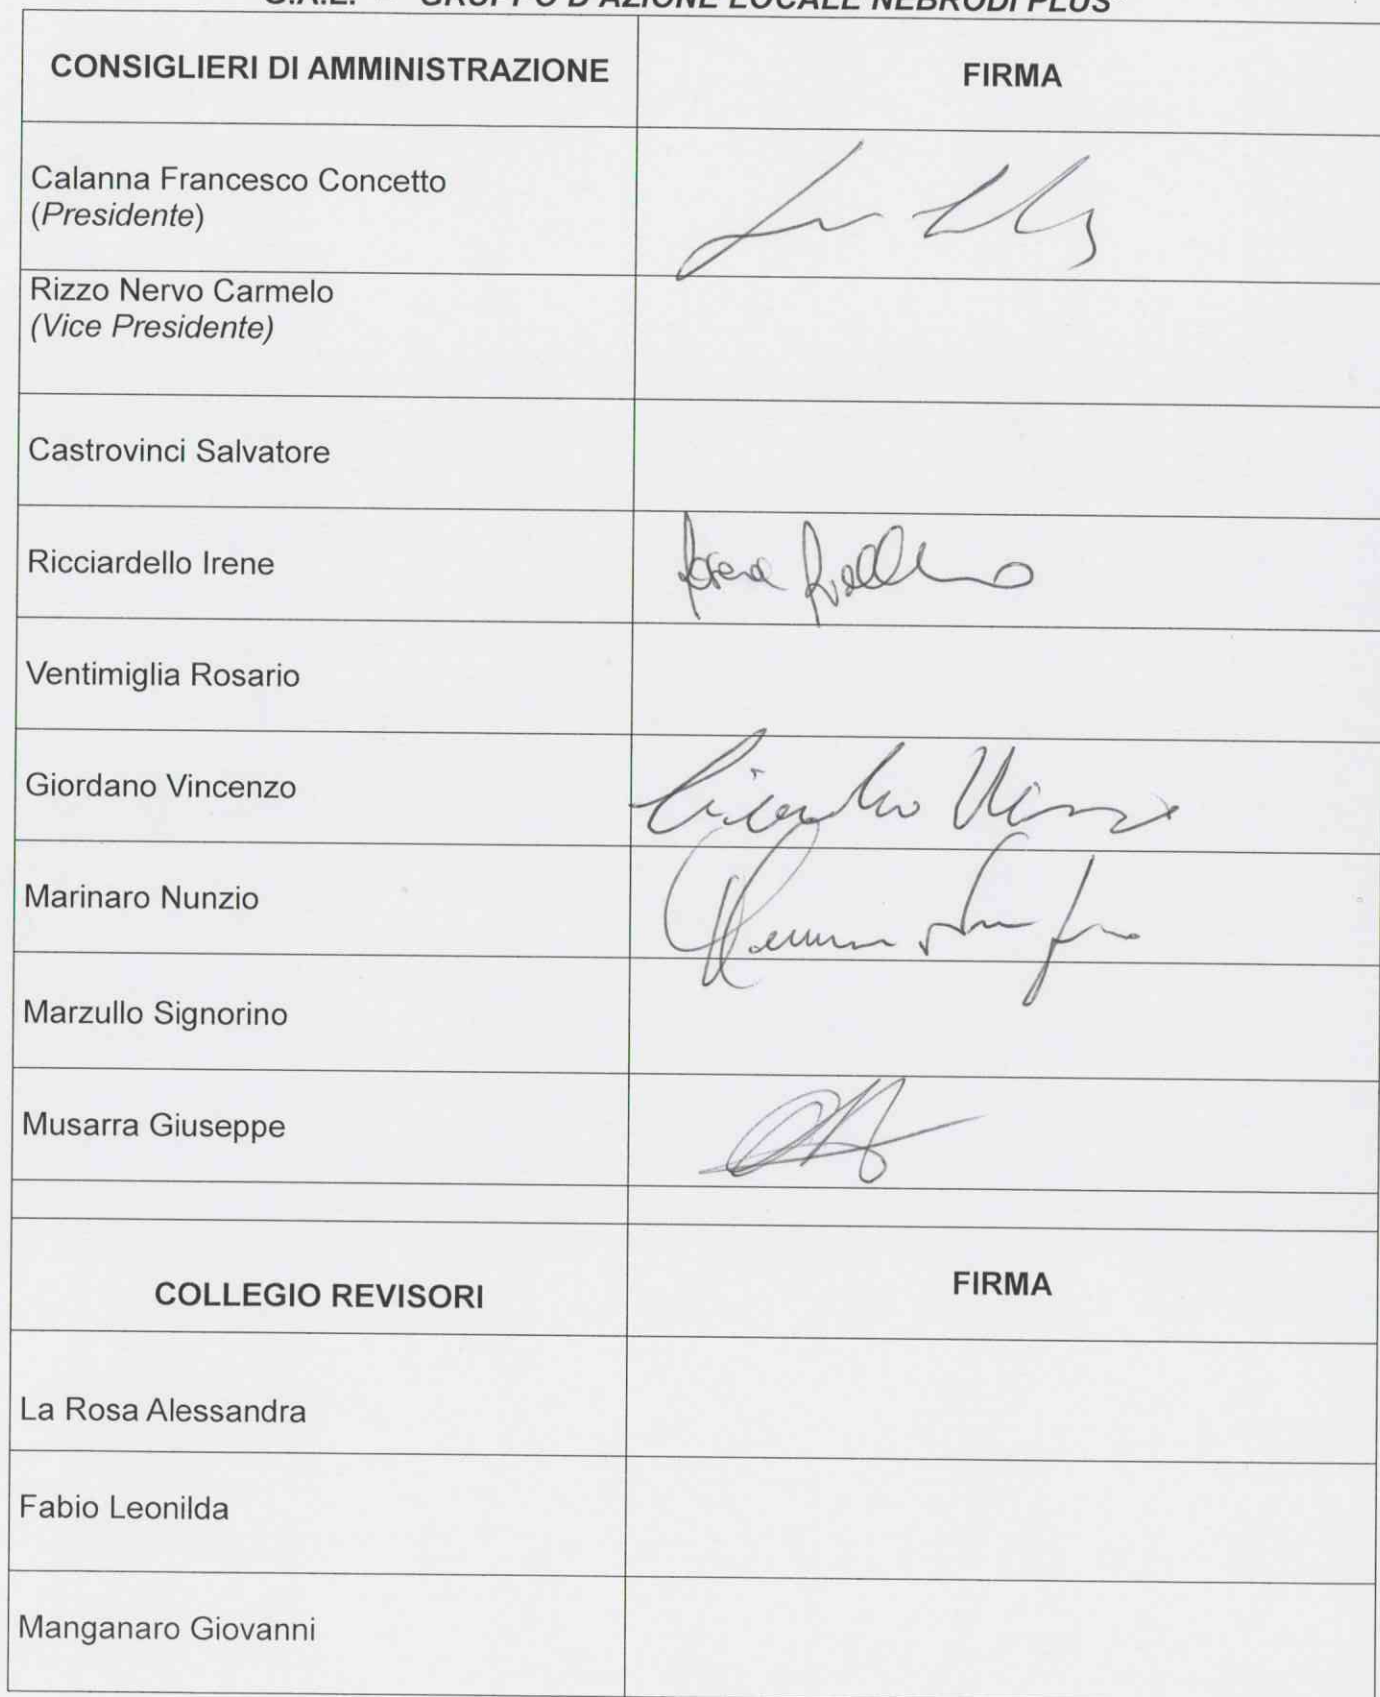 GRUPPO D'AZIONE LOCALE NEBRODI PLUS
CONSIGLIERI DI AMMINISTRAZIONE
FIRMA
Calanna Francesco Concetto
(Presidente)
Rizzo Nervo Carmelo
(Vice Presidente)
Castrovinci Salvatore
Ricciardello Irene
Ventimiglia Rosario
Giordano Vincenzo
Marinaro Nunzio
Marzullo Signorino
Musarra Giuseppe
COLLEGIO REVISORI
FIRMA
La Rosa Alessandra
Fabio Leonilda
Manganaro Giovanni